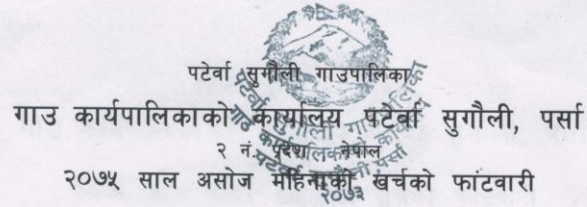 पटेर्वा सुगौली गाउपालिका
गाउ कार्यपालिकाको कार्यालय पटेर्वा सुगौली, पर्सा
२ नं. प्रदेश नेपाल
२०७५ साल असोज महिनाको खर्चको फांटवारी
२०७३